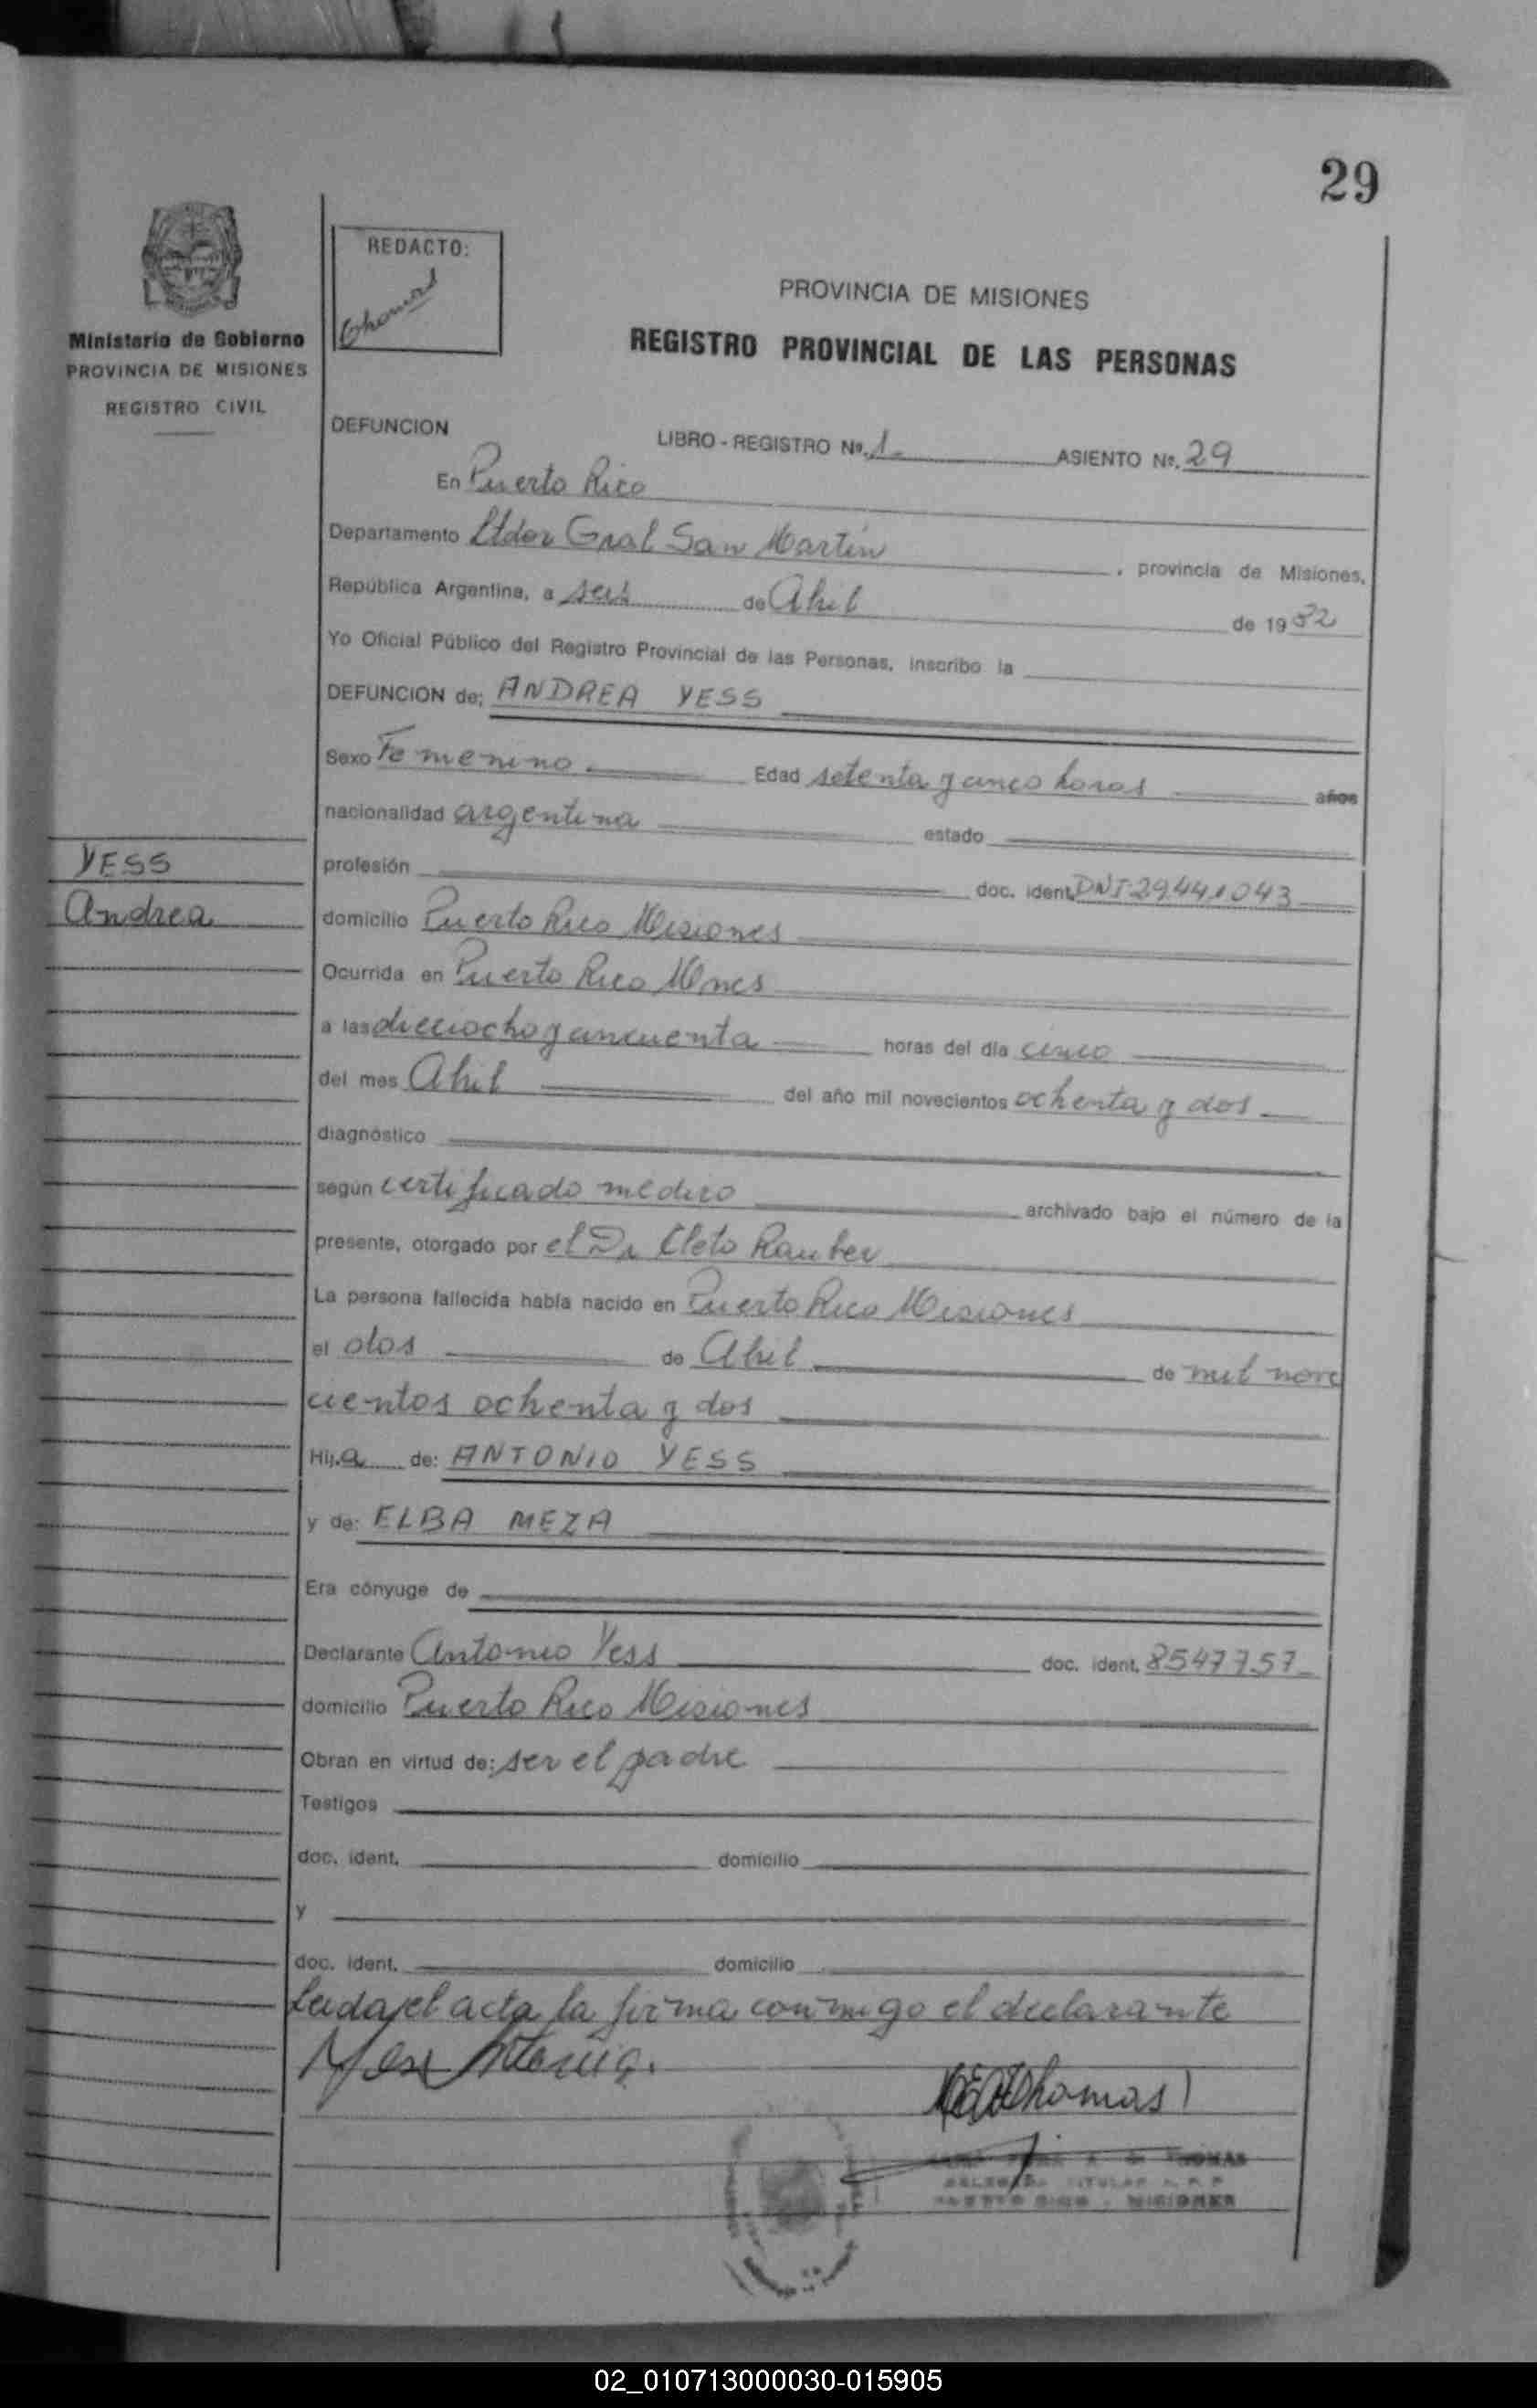 29
REDACTO:
Thomas
Ministerio de Gobierno
PROVINCIA DE MISIONES
REGISTRO CIVIL
PROVINCIA DE MISIONES
REGISTRO PROVINCIAL DE LAS PERSONAS
DEFUNCION
LIBRO - REGISTRO Nº. 1 ASIENTO Nº. 29
En Puerto Rico
Departamento Ltdor Gral San Martín , provincia de Misiones,
República Argentina, a seis de Abril de 1982
Yo Oficial Público del Registro Provincial de las Personas, inscribo la
DEFUNCION de: ANDREA YESS
Sexo Femenino Edad setenta y cinco horas años
nacionalidad argentina estado
YESS
Andrea
profesión doc. ident. DNI 29.441.043
domicilio Puerto Rico Misiones
Ocurrida en Puerto Rico Mnes
a las dieciocho y cincuenta horas del día cinco
del mes Abril del año mil novecientos ochenta y dos
diagnóstico
según certificado médico archivado bajo el número de la
presente, otorgado por el Dr Cleto Rauber
La persona fallecida había nacido en Puerto Rico Misiones
el dos de Abril de mil nove
cientos ochenta y dos
Hij.a de: ANTONIO YESS
y de: ELBA MEZA
Era cónyuge de
Declarante Antonio Yess doc. ident. 8547757
domicilio Puerto Rico Misiones
Obran en virtud de: ser el padre
Testigos
doc. ident. domicilio
y
doc. ident. domicilio
Leida el acta la firma conmigo el declarante
Thomas
THOMAS
TITULAR
PUERTO RICO - MISIONES
02_010713000030-015905